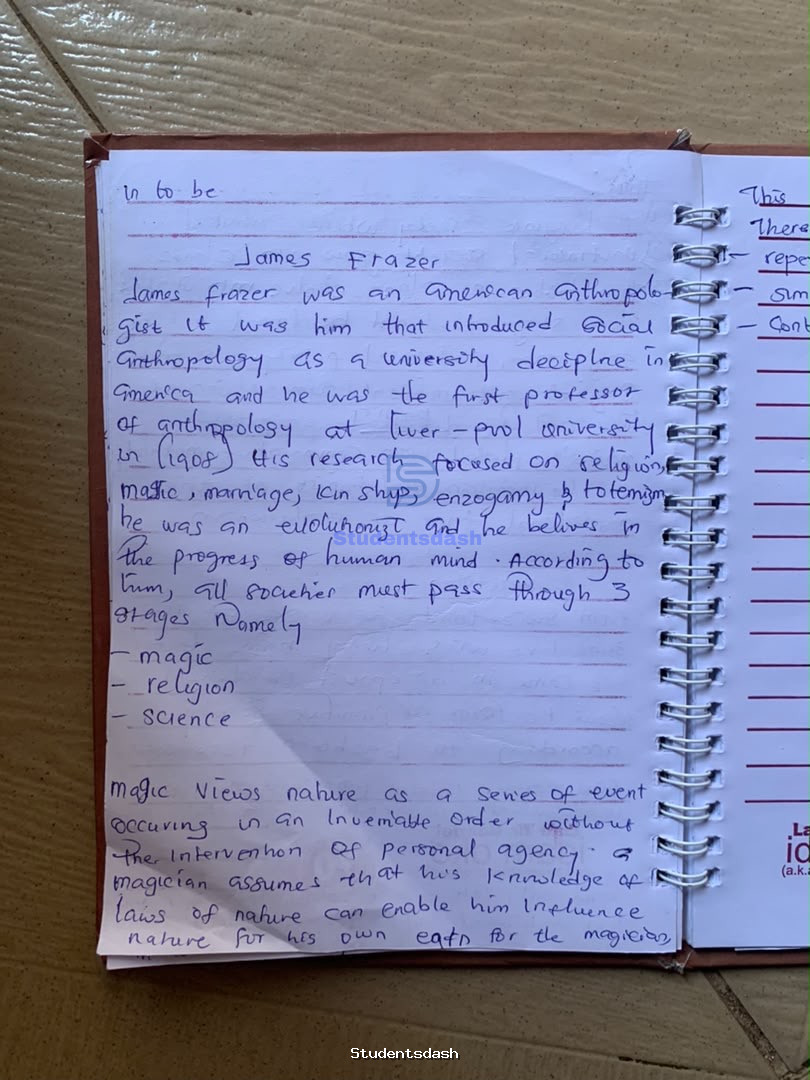 in to be
James Frazer
James frazer was an American anthropolo-
gist it was him that introduced social
anthropology as a university deciplne in
America and he was the first professor
of anthropology at liver-pool university
in (1908) His research focused on religion,
magic, marriage, kin ship, enzogamy & totemism
he was an evolutionist and he belives in
the progress of human mind. According to
him, all societies must pass through 3
stages Namely
- magic
- religion
- science
magic views nature as a series of event
occuring in an Invariable order without
the intervention of personal agency. a
magician assumes that his knowledge of
laws of nature can enable him Influence
nature for his own for the magician,
This
There
- repe
- sim
- Cont
La
id
(a.k.a
Studentsdash
Studentsdash